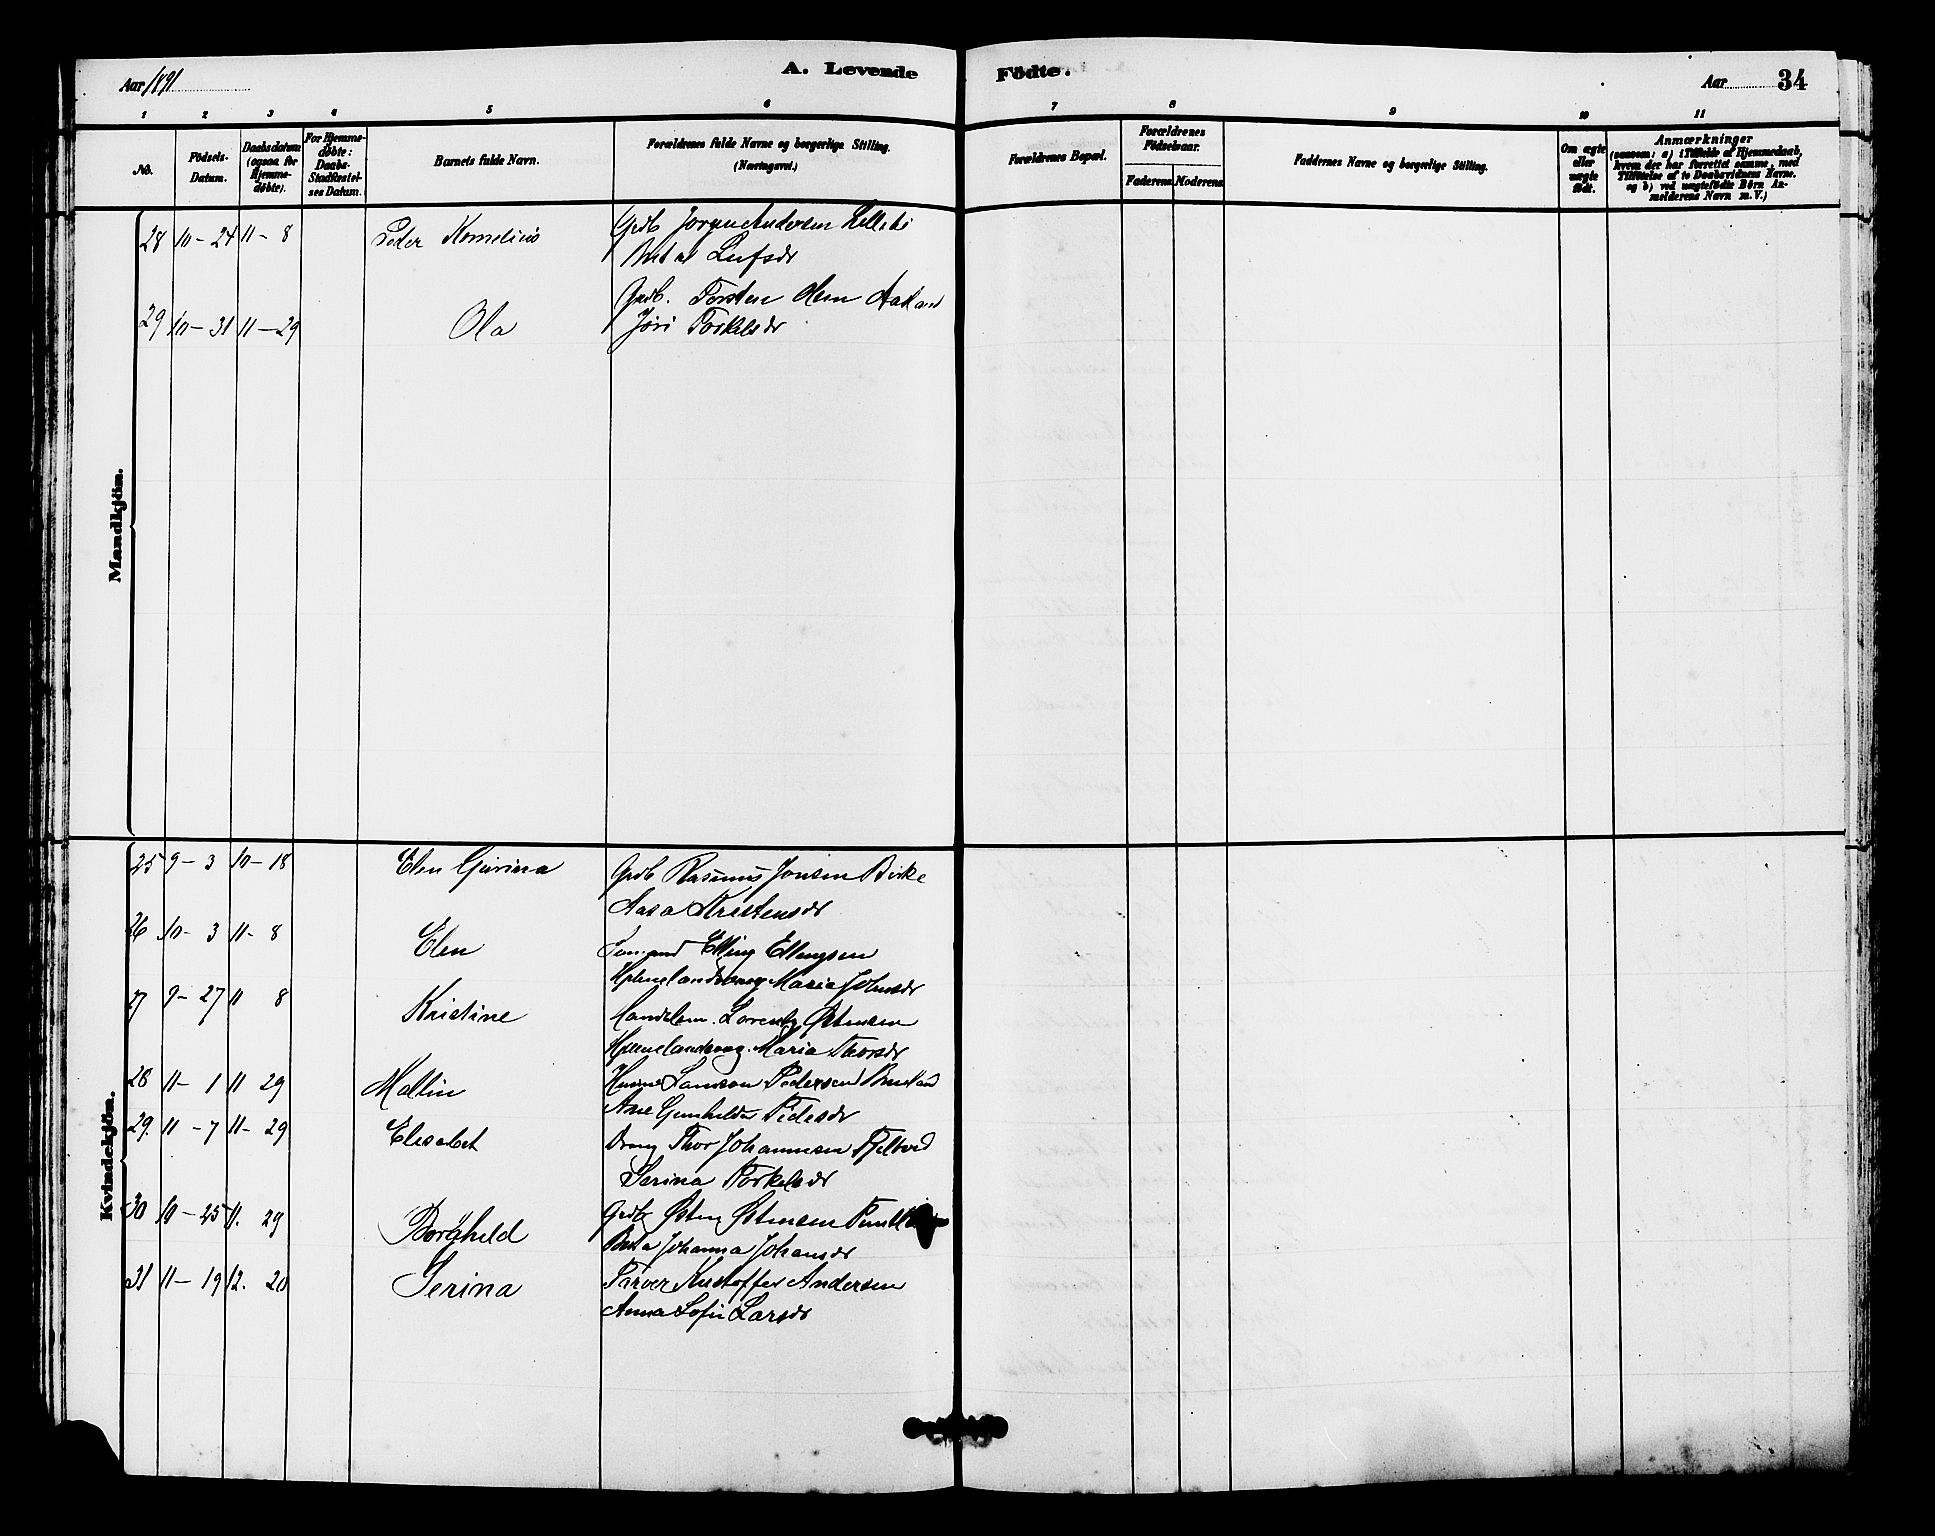 Aar 1891
A. Levende
Födte.
Aar 34
1 2 3 4 5 6 7 8 9 10 11
No.
Födsels-
Datum.
Daabsdatum
(ogsaa for
Hjemme-
døbte).
For Hjemme-
døbte:
Daabs-
Stadfæstel-
ses Datum.
Barnets fulde Navn.
Forældrenes fulde Navne og borgerlige Stilling.
(Næringsvei.)
Forældrenes Bopæl.
Forældrenes
Födselsaar.
Faderens Moderens
Faddernes Navne og borgerlige Stilling.
Om ægte
eller
uægte
födt.
Anmærkninger
(saasom: a) i Tilfælde af Hjemmedaab,
hvem der har forrettet samme, med
Tilföielse af to Daabsvidners Navne.
og b) ved uægtefödte Börn An-
melderens Navn m.V.)
Mandkjön.
28 10-24 11-8 Peder Kornelius Grdb Jorgen Andersen
29 10-31 11-29 Ola Grdb. Torsten
Torkelsdr
Kvindekjön.
25 9-3 10-18 Elen Gurina Grdb Rasmus Jonsen Birke
Aasa Kristensdr
26 10-3 11-8 Elen Elling Ellingsen
Maria Johnsdr
27 9-27 11 8 Kristine Østensen
Maria Thorsdr
28 11-1 11 29 Maltin Samson Pedersen
Ane Gunhilda Pedersdr
29. 11-7 11-29 Elisabet Dreng Thor Johannesen
Serina Torkelsdr
30 10-25 11. 29 Borghild Grdb Østen Østensen
Johanna Johansdr
31 11-19 12. 20 Serina Farver Kristoffer Andersen
Anna Sofie Larsdr